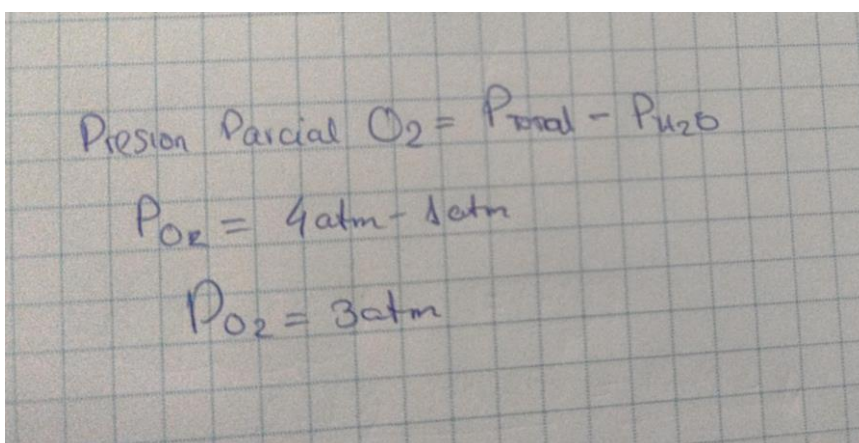 Presion Parcial O₂ = Ptotal - PH₂O
PO₂ = 4atm - 1atm
PO₂ = 3atm